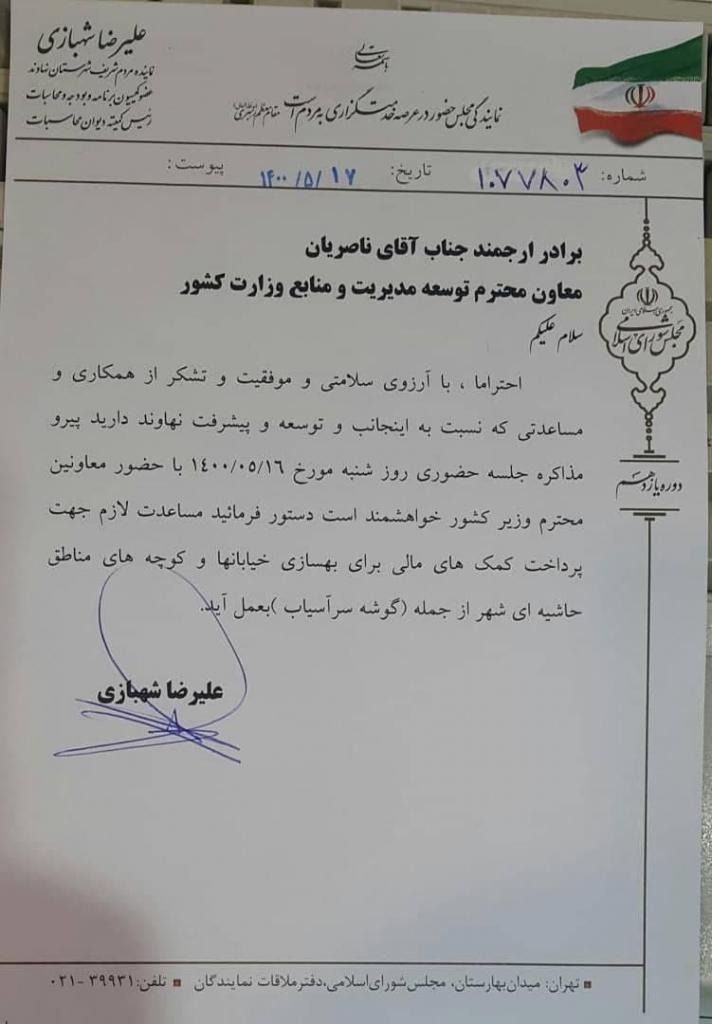 باسمه تعالی
علیرضا شهبازی
نماینده مردم شریف شهرستان نهاوند
عضو کمیسیون برنامه و بودجه و محاسبات
رئیس کمیته دیوان محاسبات
نمایندگی مجلس حضور در عرصه خدمتگزاری به مردم است مقام معظم رهبری
شماره: ۱۰۷۷۸۰۳
تاریخ: ۱۴۰۰/۵/۱۷
پیوست:
جمهوری اسلامی ایران
مجلس شورای اسلامی
دوره یازدهم
برادر ارجمند جناب آقای ناصریان
معاون محترم توسعه مدیریت و منابع وزارت کشور
سلام علیکم
احتراما ، با آرزوی سلامتی و موفقیت و تشکر از همکاری و
مساعدتی که نسبت به اینجانب و توسعه و پیشرفت نهاوند دارید پیرو
مذاکره جلسه حضوری روز شنبه مورخ ۱۴۰۰/۰۵/۱۶ با حضور معاونین
محترم وزیر کشور خواهشمند است دستور فرمائید مساعدت لازم جهت
پرداخت کمک های مالی برای بهسازی خیابانها و کوچه های مناطق
حاشیه ای شهر از جمله (گوشه سرآسیاب )بعمل آید.
علیرضا شهبازی
تهران: میدان بهارستان، مجلس شورای اسلامی، دفتر ملاقات نمایندگان تلفن: ۳۹۹۳۱-۰۲۱